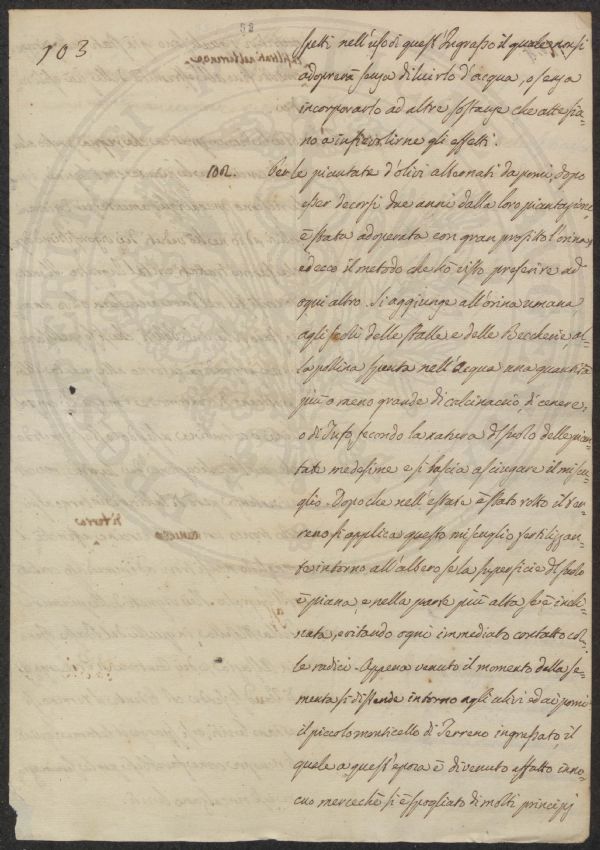 103
58
spetti nell'uso di quest'Ingrasso il quale non si
adoprerà senza diluirlo d'acqua, o senza
incorporarlo ad altre sostanze che atte sia-
no a infievolirne gli effetti.
102. Per le piantate d'olivi alternati da pomi, dopo
esser decorsi due anni dalla loro piantazione
è stata adoperata con gran profitto l'orina,
ed ecco il metodo che hò visto preferire ad
ogni altro. Si aggiunge all'orina umana
agli scoli delle stalle e delle Beccherie, al-
la pollina spenta nell'acqua una quantità
più o meno grande di calcinaccio, di cenere,
o di Tufo, secondo la natura del suolo delle pian-
tate medesime e si lascia asciugare il miscu-
glio. Dopo che nell'estate è stato rotto il ter-
reno si applica questo miscuglio fertilizzan-
te intorno all'albero se la superficie del suolo
è piana, e nella parte più alta se è incli-
nata, evitando ogni immediato contatto col-
le radici. Appena venuto il momento della se-
menta si distende intorno agli ulivi ed ai pomi
il piccolo monticello di Terreno ingrassato, il
quale a quest'epoca è divenuto affatto inno-
cuo mercechè si è spogliato di molti principj